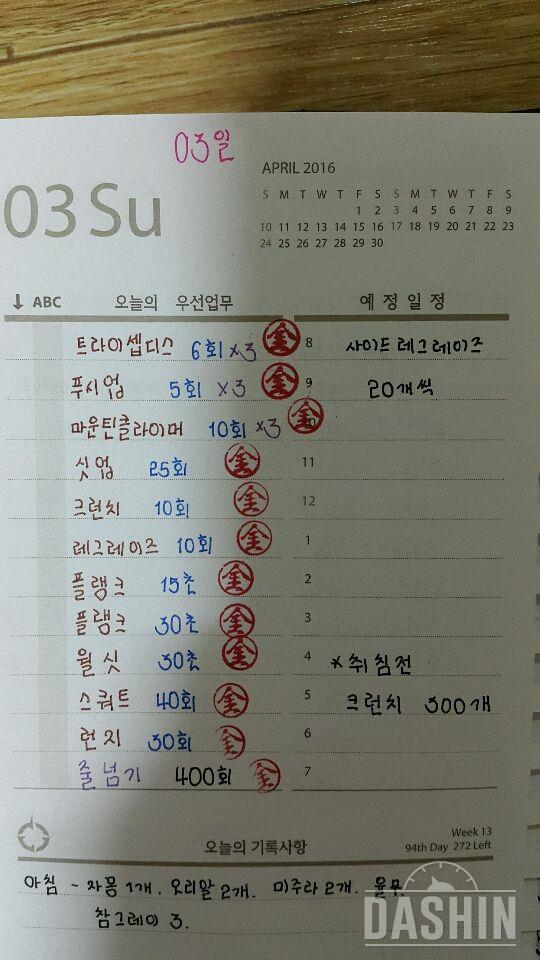 03일
03 Su
APRIL 2016
S M T W T F S S M T W T F S
1 2 3 4 5 6 7 8 9
10 11 12 13 14 15 16 17 18 19 20 21 22 23
24 25 26 27 28 29 30
↓ ABC 오늘의 우선업무 예정일정
트라이셉디스 6회 x3 金 8 사이드레그레이즈
푸시업 5회 x3 金 9 20개씩
마운틴클라이머 10회 x3 金 10
싯업 25회 金 11
크런치 10회 金 12
레그레이즈 10회 金 1
플랭크 15초 金 2
플랭크 30초 金 3
월싯 30초 金 4 *취침전
스쿼트 40회 金 5 크런치 300개
런지 30회 金 6
줄넘기 400회 金 7
오늘의 기록사항
Week 13
94th Day 272 Left
아침 - 자몽1개. 오리알2개. 미주라2개.
참그레이 3.
DASHIN